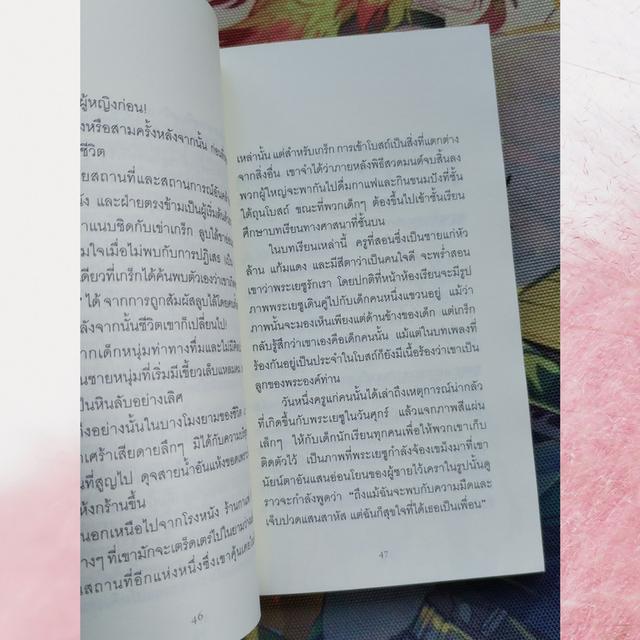 ผู้หญิงก่อน!
งหรือสามครั้งหลังจากนั้น
ชีวิต
ยสถานที่และสถานการณ์อัน
และฝ่ายตรงข้ามเป็นผู้เริ่มต้น
าแนบชิดกับเข่าเกร็ก
มใจเมื่อไม่พบการปฏิเสธ
เดียวที่เกร็กได้ค้นพบตัวเองว่าเขา
ได้ จากการถูกสัมผัสลูบไล้โดย
ลังจากนั้นชีวิตเขาก็เปลี่ยนไป!
ากเด็กหนุ่มท่าทางทึ่มและไม่มี
นชายหนุ่มที่เริ่มมีเขี้ยวเล็บแหลมคม
เป็นหินลับอย่างเลิศ
ถึงอย่างนั้นในบางโมงยามของชีวิต
าเศร้าเสียดายลึกๆ มิได้กับความ
นที่สูญไป ดุจสายน้ำอันแห้งขอด
ห้งกร้านขึ้น
นอกเหนือไปจากโรงหนัง ร้านกาแฟ
างๆ ที่เขามักจะเตร็ดเตร่ไปในยาม
นสถานที่อีกแห่งหนึ่งซึ่งเขาคุ้นเคย
46
เหล่านั้น แต่สำหรับเกร็ก การเข้าโบสถ์เป็นสิ่งที่แตกต่าง
จากสิ่งอื่น เขาจำได้ว่าภายหลังพิธีสวดมนต์จบสิ้นลง
พวกผู้ใหญ่จะพากันไปดื่มกาแฟและกินขนมปังที่ชั้น
ใต้ถุนโบสถ์ ขณะที่พวกเด็กๆ ต้องขึ้นไปเข้าชั้นเรียน
ศึกษาบทเรียนทางศาสนาที่ชั้นบน
ในบทเรียนเหล่านี้ ครูที่สอนซึ่งเป็นชายแก่หัว
ล้าน แก้มแดง และมีสีตาว่าเป็นคนใจดี จะพร่ำสอน
เขาว่าพระเยซูรักเรา โดยปกติที่หน้าห้องเรียนจะมีรูป
ภาพพระเยซูเดินคู่ไปกับเด็กคนหนึ่งแขวนอยู่ แม้ว่า
ภาพนั้นจะมองเห็นเพียงแต่ด้านข้างของเด็ก แต่เกร็ก
กลับรู้สึกว่าเขาเองคือเด็กคนนั้น แม้แต่ในบทเพลงที่
ร้องกันอยู่เป็นประจำในโบสถ์ก็ยังมีเนื้อร้องว่าเขาเป็น
ลูกของพระองค์ท่าน
วันหนึ่งครูแก่คนนั้นได้เล่าถึงเหตุการณ์น่ากลัว
ที่เกิดขึ้นกับพระเยซูในวันศุกร์ แล้วแจกภาพสีแผ่น
เล็กๆ ให้กับเด็กนักเรียนทุกคนเพื่อให้พวกเขาเก็บ
ติดตัวไว้ เป็นภาพที่พระเยซูกำลังจ้องเขม็งมาที่เขา
นัยน์ตาอันแสนอ่อนโยนของผู้ชายไว้เคราในรูปนั้นดู
ราวจะกำลังพูดว่า “ถึงแม้ฉันจะพบกับความมืดและ
เจ็บปวดแสนสาหัส แต่ฉันก็สุขใจที่ได้เธอเป็นเพื่อน”
47